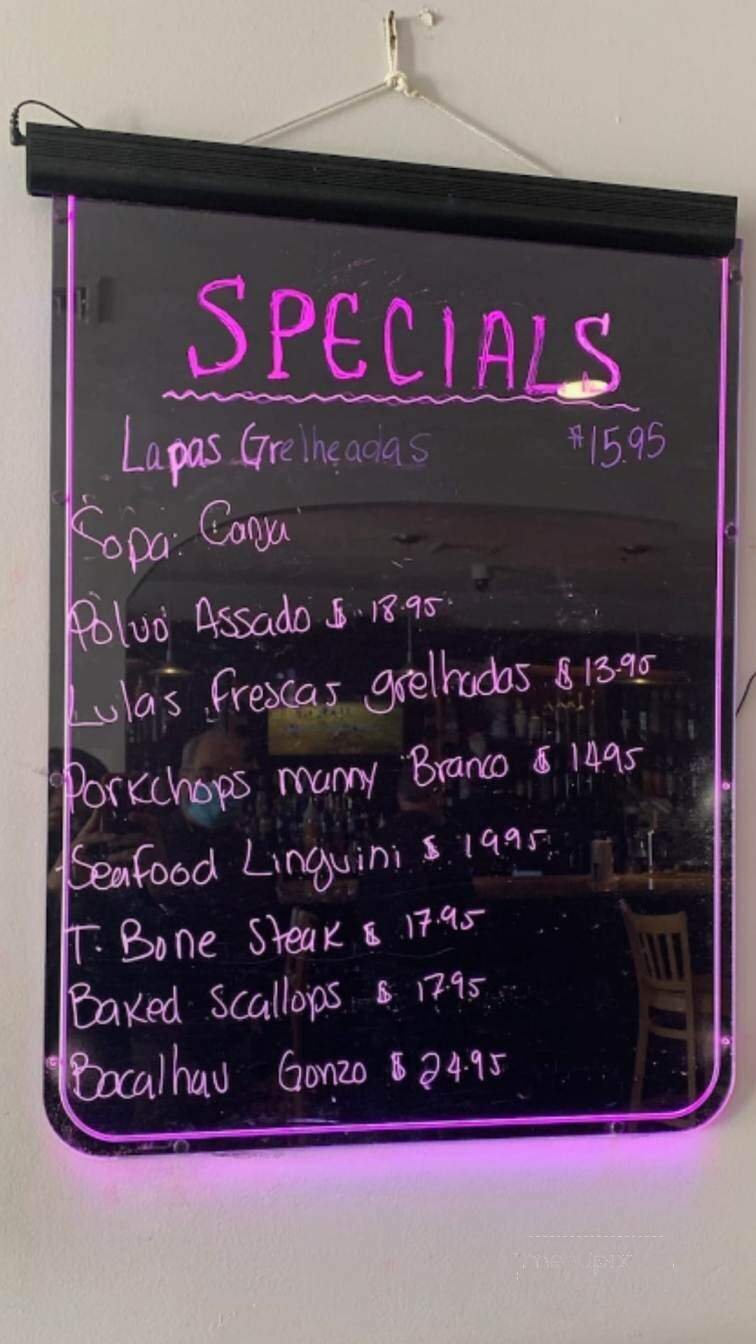 SPECIALS
Lapas Grelheadas $15.95
Sopa: Canja
Polvo Assado $ 18.95
Lulas frescas grelhadas $ 13.95
Porkchops manny Branco $ 14.95
Seafood Linguini $ 19.95
T. Bone Steak $ 17.95
Baked Scallops $ 17.95
Bacalhau Gonzo $ 24.95